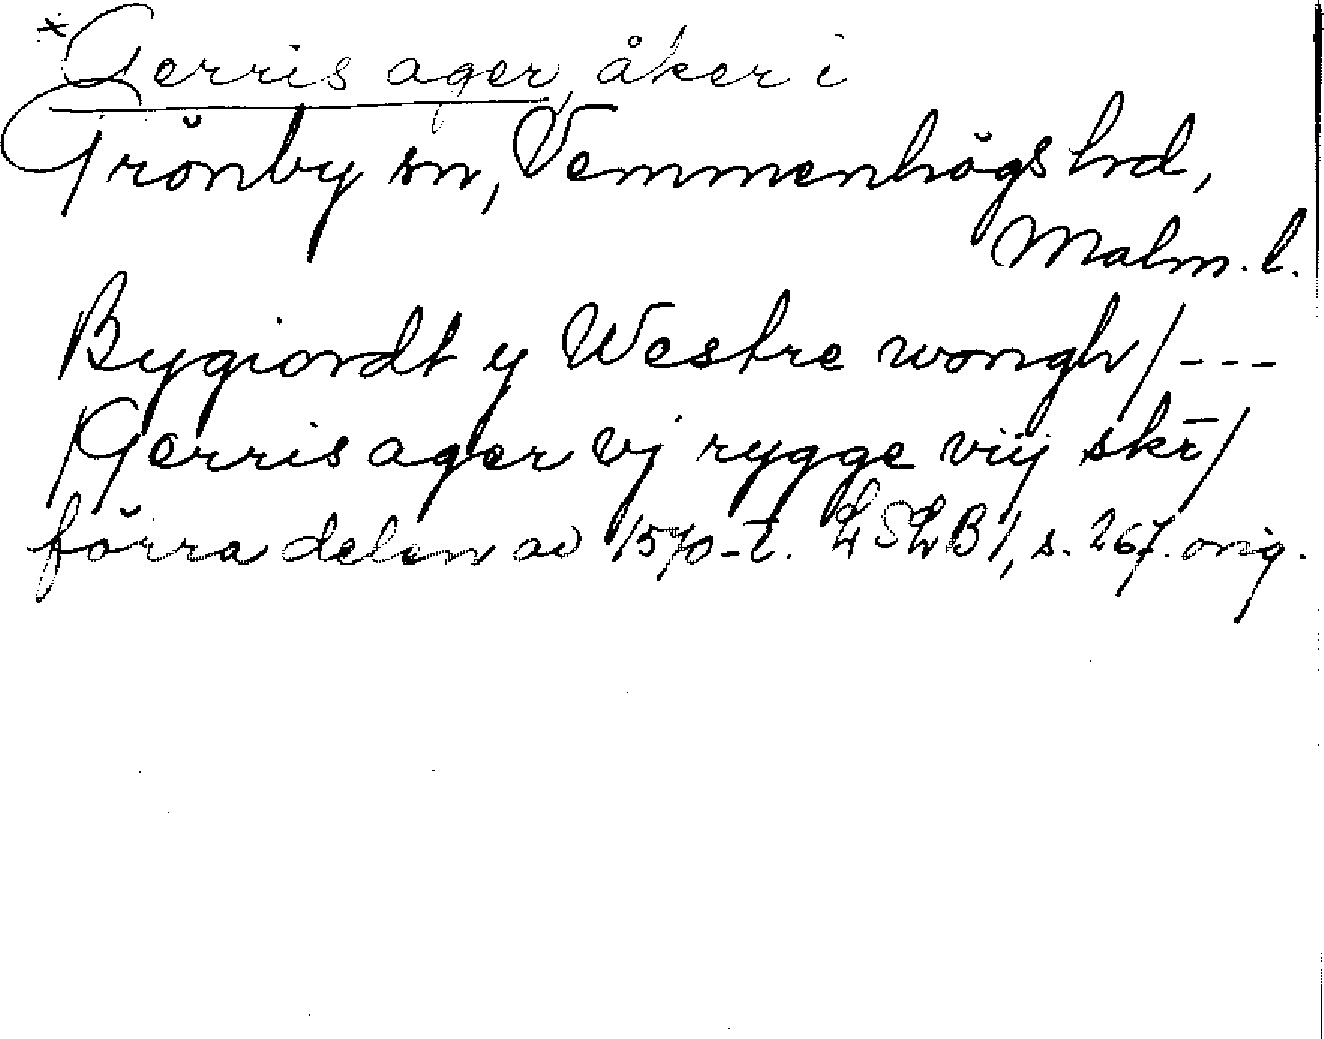 *Gerris ager, åker i
Grönby sn, Vemmenhögs hrd,
Malm. l.
Bygiordt y Westre wongh / ---
/ Gerris ager vj rygge viij skr̄ /
förra delen av 1570-t. LSLB 1, s. 267. orig.